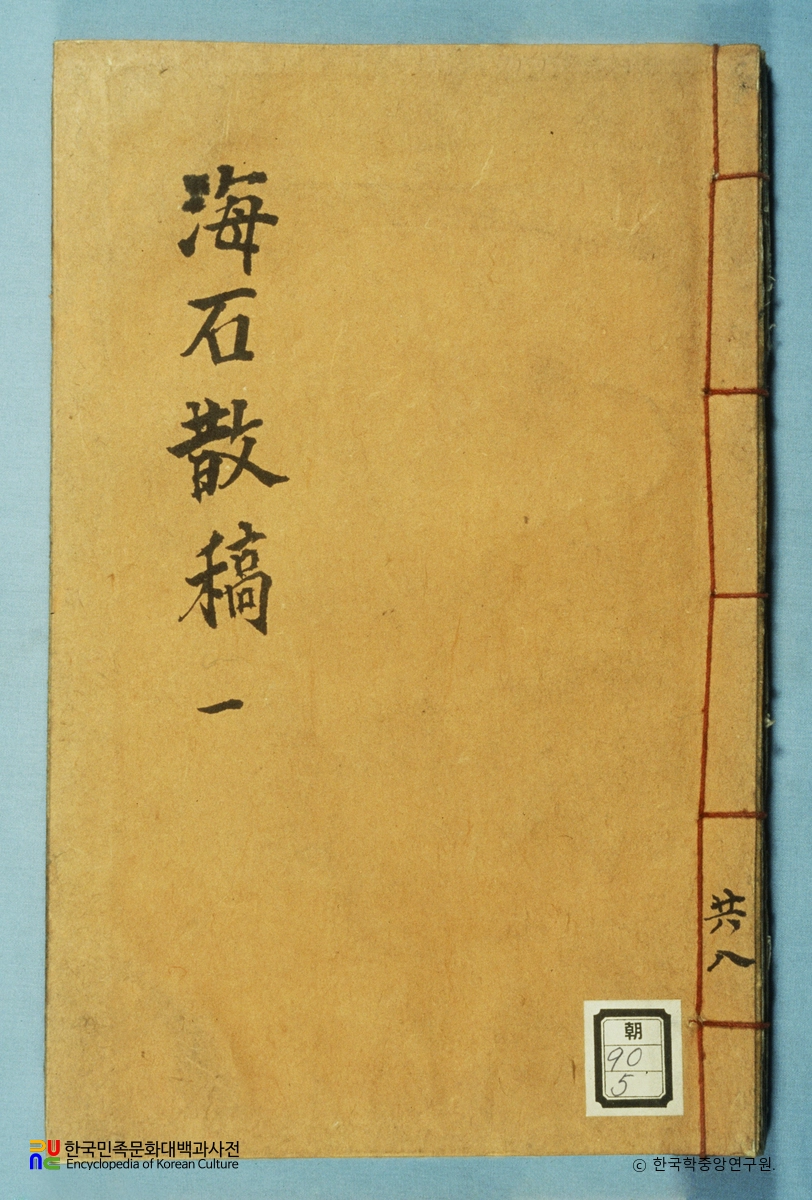 海石散稿 一
共八
朝
90
5
한국민족문화대백과사전
Encyclopedia of Korean Culture
ⓒ 한국학중앙연구원.